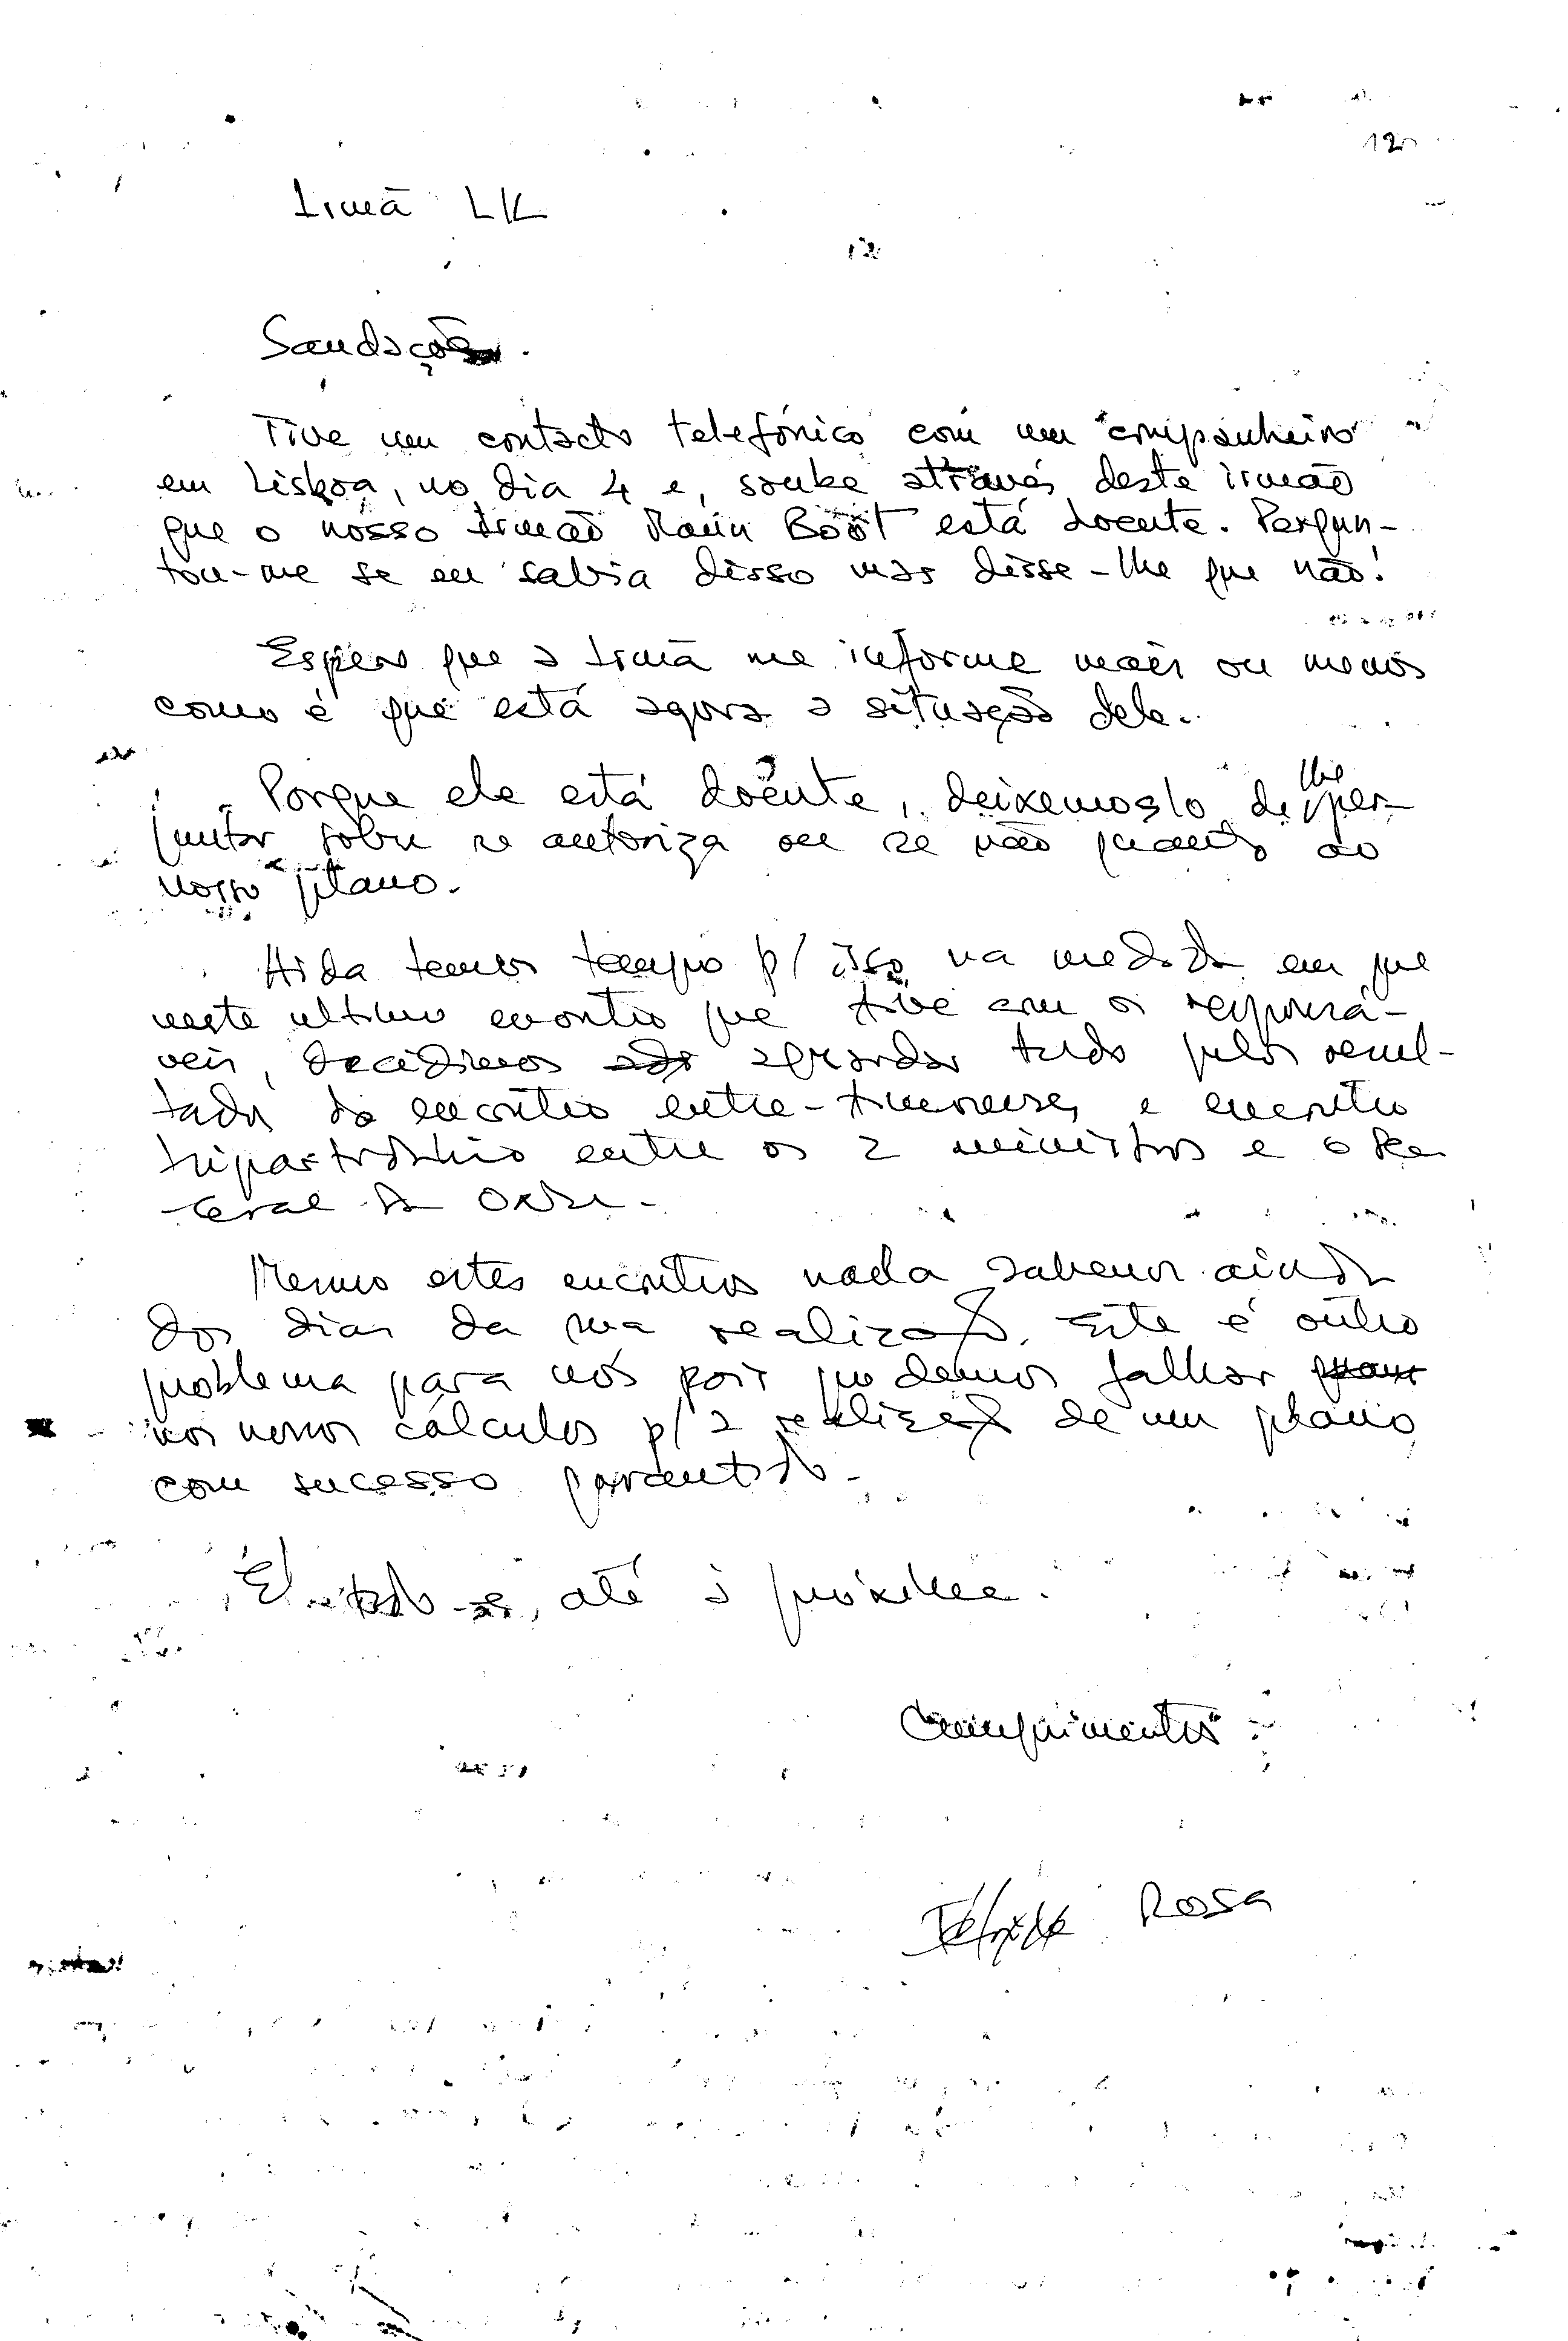 12
Irmã LK
12
Saudações.
Tive um contacto telefónico com um companheiro
em Lisboa, no dia 4 e, soube através deste irmão
que o nosso irmão Maun Boot está doente. Pergun-
tou-me se eu sabia disso mas disse-lhe que não!
Espero que a irmã me informe mais ou menos
como é que está agora a situação dele.
Porque ele está doente, deixemos de lhe per-
guntar sobre se autoriza ou se não quanto ao
nosso plano.
Aida temos tempo p/ isso na medida em que
neste ultimo encontro que tive com os responsá-
veis, decidimos aguardar tudo pelos resul-
tados do encontro entre-timorenses e encontro
tripartidário entre os 2 ministros e o Sec.
Geral da ONU.
Mesmo estes encontros nada sabemos ainda
dos dias da sua realização. Este é outro
problema para nós pois podemos falhar
nos nossos cálculos p/ a realização de um plano
com sucesso garantido.
até à próxima.
Cumprimentos
Rosa